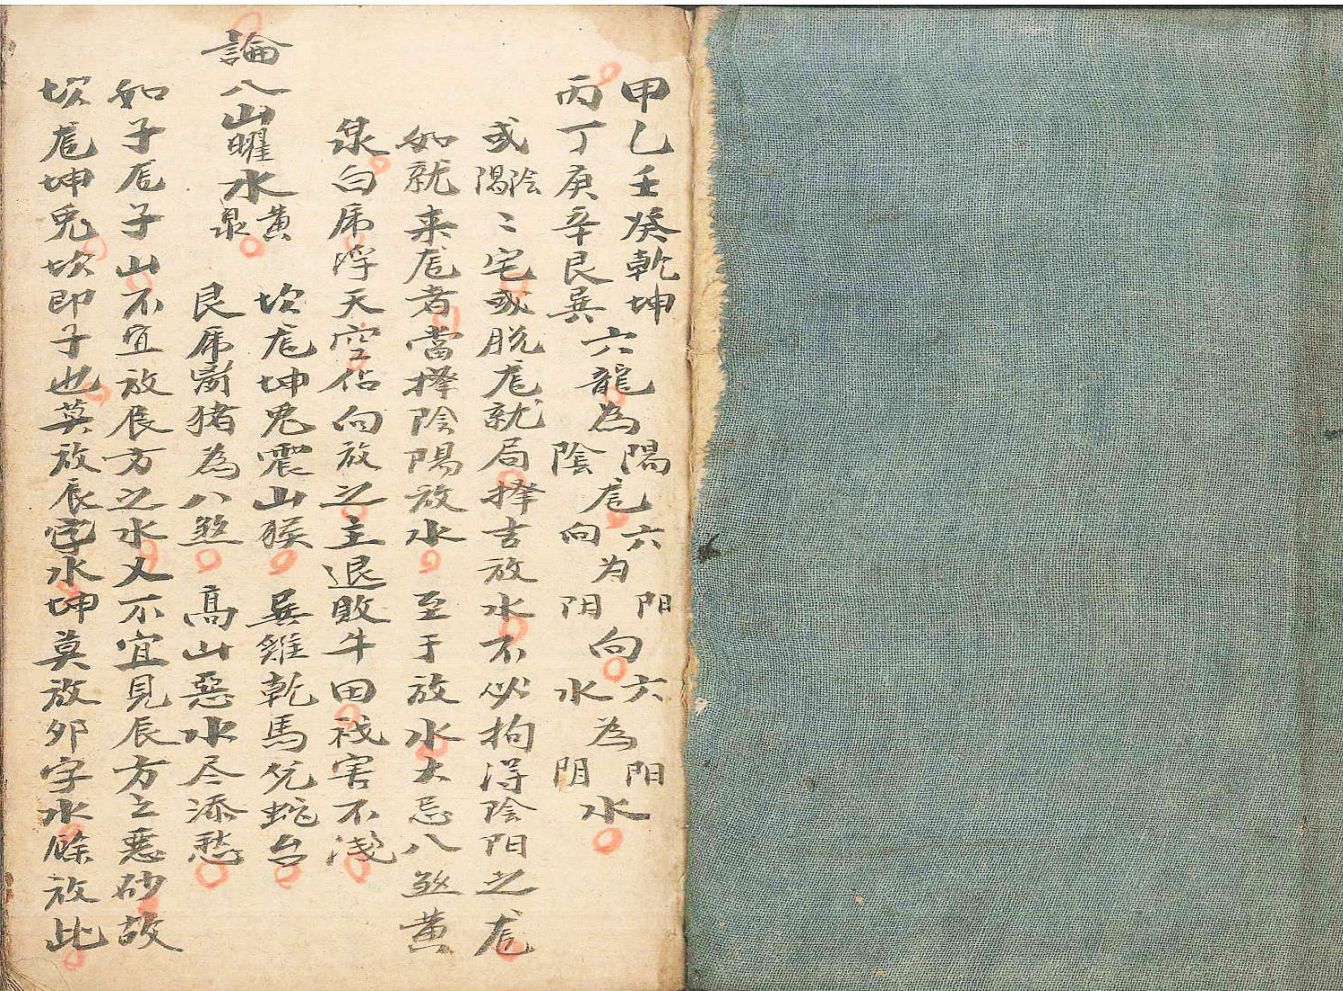 甲乙壬癸乾坤
丙丁庚辛艮巽
六龍為
陽
陰
龙六
向
为
阳
阴
向六
水
為
阳
阴
水
或陰陽二宅或脱龙就局擇吉放水不必拘淂陰阳之龙
如就来龙者當擇陰陽放水至于放水大忌八煞黄
泉白虎浮天空佔向放之主退敗牛田祸害不淺
論八山曜水黄泉
坎龙坤兎震山猴巽雞乾馬兊蛇台
艮虎离猪為八煞高山惡水尽添愁
如子龙子山不宜放辰方之水又不宜見辰方之惡砂故
坎龙坤兎坎即子也莫放辰字水坤莫放卯字水餘放此